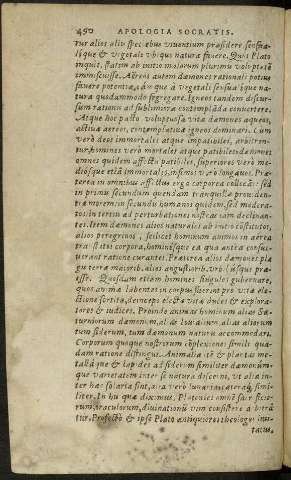 490 APOLOGIA SOCRATIS.
tur alios aliis speciebus viventium præsidere sensua-
lique & vegetali ubique naturæ favere. Quis Plato
inquit, statim ab initio malorum plurimis voluptatem
immiscuisse. Aereos autem dæmones rationali potius
favere potentia, eamque a vegetali sensualique na-
tura quodammodo segregare. Igneos tandem discur-
sum rationis ad sublimiora contemplanda convertere.
Atque hoc pacto voluptuosæ vitæ dæmones aqueos,
activæ aereos, contemplativæ igneos dominari. Cum
vero deos immortales atque impatibiles, arbitren-
tur, homines vero mortales atque patibiles: dæmones
omnes quidem affectu patibiles, superiores vero me-
diosque etiam immortales, infimos vero longævos. Præ-
terea in omnibus affectus erga corporea collocat: sed
in primis secundum quendam tranquillæ providen-
tiæ morem: in secundis humanis quidem, sed modera-
tos: in tertiis ad perturbationes nostras iam declinan-
tes. Item dæmones alios naturales ab initio constitutos,
alios peregrinos, scilicet hominum animos in aerea
transisse corpora, hominesque ea qua antea consue-
verant ratione curantes. Præterea alios dæmones pla-
gis terræ maioribus, alios angustioribus, urbibusque præ-
esse. Quosdam etiam homines singulos gubernare,
quos animæ labentes in corpus, sibi et pro vitæ ele-
ctione sortitæ, deinceps electæ vitæ duces & explora-
tores & iudices. Proinde animæ hominum aliæ Sa-
turniorum dæmonum, aliæ Iovialium aliæ aliorum
tum siderum, tum dæmonum naturis accommodari.
Corporum quoque nostrorum complexiones simili qua-
dam ratione distingui. Animalia item & plantas me-
tallaque & lapides ad siderum similiter dæmonum-
que varietatem inter se natura discerni, ut alia in-
ter hæc solaria sint, alia vero lunaria: cæteraque simi-
liter. In his quæ diximus, Platonici omnem fere sacro-
rum, oraculorum, divinationum vim consistere arbitran-
tur. Profecto & ipse Plato antiquos theologos imi-
tatus,